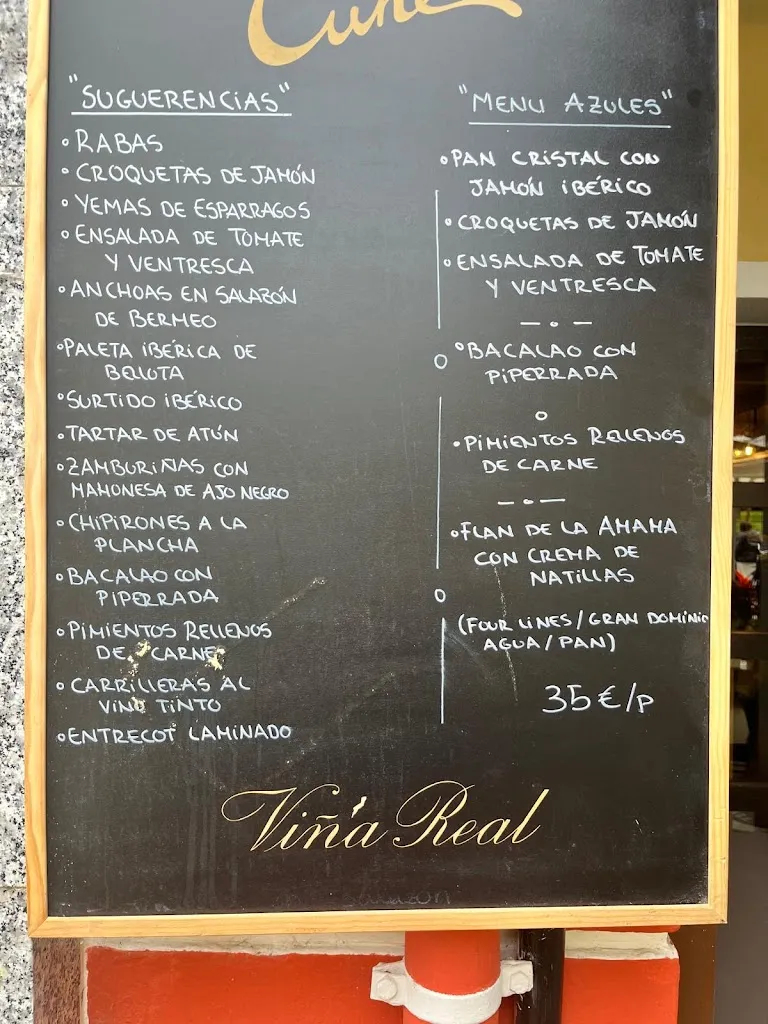 Cune
"SUGUERENCIAS"
• RABAS
• CROQUETAS DE JAMÓN
• YEMAS DE ESPARRAGOS
• ENSALADA DE TOMATE
Y VENTRESCA
• ANCHOAS EN SALAZÓN
DE BERMEO
• PALETA IBÉRICA DE
BELLOTA
• SURTIDO IBÉRICO
• TARTAR DE ATÚN
• ZAMBURIÑAS CON
MAHONESA DE AJO NEGRO
• CHIPIRONES A LA
PLANCHA
• BACALAO CON
PIPERRADA
• PIMIENTOS RELLENOS
DE CARNE
• CARRILLERAS AL
VINO TINTO
• ENTRECOT LAMINADO
"MENU AZULES"
• PAN CRISTAL CON
JAMÓN IBÉRICO
• CROQUETAS DE JAMÓN
• ENSALADA DE TOMATE
Y VENTRESCA
• BACALAO CON
PIPERRADA
O
• PIMIENTOS RELLENOS
DE CARNE
• FLAN DE LA AMAMA
CON CREMA DE
NATILLAS
(FOUR LINES/GRAN DOMINIO
AGUA/PAN)
35€/P
Viña Real